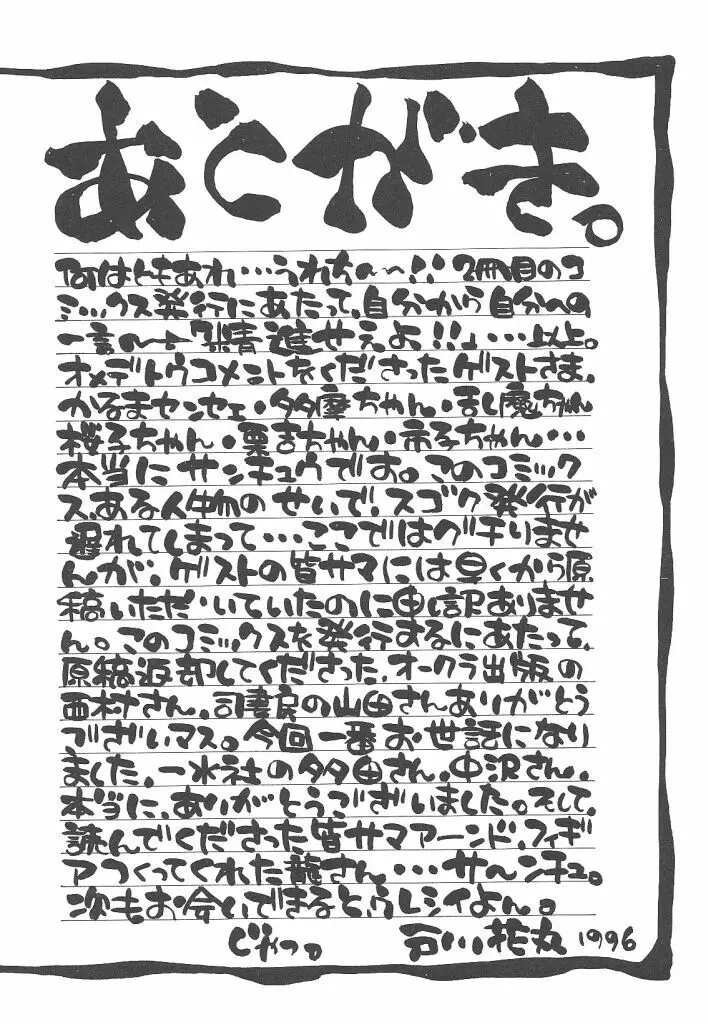 あとがき。
何はともあれ…うれちぃ〜!! 2冊目のコ
ミックス発行にあたって、自分から自分への
一言の〜「精進せえよ!!」…以上。
オメデトウコメントをくださったゲストさま、
かるまセンセェ・多摩ちゃん・乱魔ちゃん
桜子ちゃん・栗吉ちゃん・市子ちゃん…
本当にサンキュウです。このコミック
ス、ある人物のせいで、スゴク発行が
遅れてしまって…ここではグチりませ
んが、ゲストの皆サマには早くから原
稿いただいていたのに申し訳ありませ
ん。このコミックスを発行するにあたって、
原稿返却してくださった、オークラ出版の
西村さん、司書房の山田さんありがとう
ございマス。今回一番お世話になり
ました、一水社の多田さん、中沢さん、
本当に、ありがとうございました。そして、
読んでくださった皆サマアーンド、フィギ
アつくってくれた龍さん…サーンキュ。
次もお会いできると、うレシイよん。
じゃっ。 戸川花丸 1996